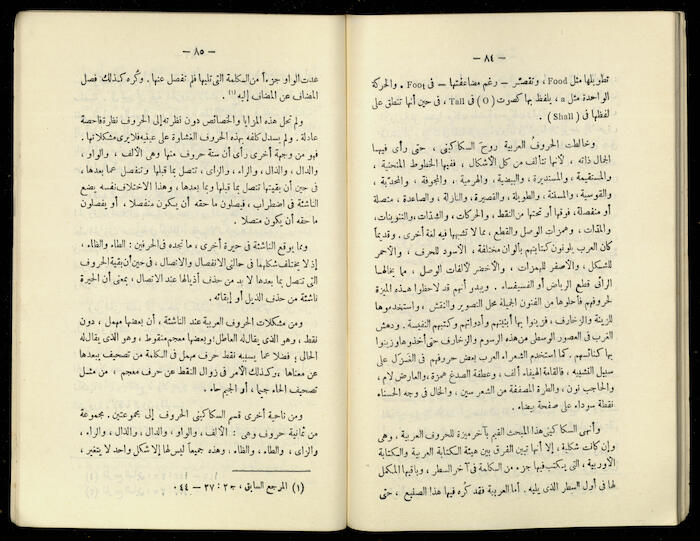 — ٨٤ —
تطويلها مثل Food، وتقصّر — رغم مضاعفتها — فى Foot. والحركة
الواحدة مثل a، يلفظ بها كصوت (O) فى Tall، فى حين أنها تنطق على
لفظها فى (Shall).
وخالطت الحروفُ العربية روحَ السكاكينى، حتى رأى فيها
الجمال ذاته. لأنها تتألف من كل الأشكال، ففيها الخطوط المنحنية،
والمستقيمة، والمستديرة، والبيضية، والهرمية، والمجوفة، والمحدّبة،
والقوسية، والمسننة، والطويلة، والقصيرة، والنازلة، والصاعدة، متصلة
أو منفصلة، فوقها أو تحتها من النقط، والحركات، والشدّات، والتنوينات،
والمدّات، وهمزات الوصل والقطع، مما لا تشبهها فيه لغة أخرى. وقديماً
كان العرب يلونون كتابتهم بألوان مختلفة، الأسود للحرف، والأحمر
للشكل، والأصفر للهمزات، والأخضر لألفات الوصل، مما يخالها
الرائى قطع الرياض أو الفسيفساء. ويبدو أنهم قد لاحظوا هذه الميزة
لحروفهم فأحلوها من الفنون الجميلة محل التصوير والنقش، واستخدموها
للزينة والزخارف، فزينوا بها أبنيتهم وأدواتهم وكتبهم النفيسة. ودهش
الغرب فى العصور الوسطى من هذه الرسوم والزخارف حتى أخذوها وزينوا
بها كنائسهم. كما استخدم الشعراء العرب بعض حروفهم فى الغزل على
سبيل التشبيه، فالقامة الهيفاء ألف، وعطفة الصدغ همزة والعارض لام،
والحاجب نون، والطرة المصففة من الشعر سين، والخال فى وجه الحسناء
نقطة سوداء على صفحة بيضاء.
وأنهى السكاكينى هذا المبحث القيم بآخر ميزة للحروف العربية، وهى
وإن كانت شكلية، إلا أنها تبين الفرق بين هيئة الكتابة العربية والكتابة
الأوربية، التى يكتب فيها جزء من الكلمة فى آخر السطر، وباقيها المكمل
لها فى أول السطر الذى يليه. أما العربية فقد كره فيها هذا الصنيع، حتى
— ٨٥ —
عدت الواو جزءاً من الكلمة التى تليها فلم تفصل عنها. وكُره كذلك فصل
المضاف عن المضاف إليه(١)
ولم تحل هذه المزايا والخصائص دون نظرته إلى الحروف نظرة فاحصة
عادلة. ولم يسدل كلفه بهذه الحروف الغشاوة على عينيه فلا يرى مشكلاتها.
فهو من وجهة أخرى رأى أن ستة حروف منها وهى الألف، والواو،
والدال، والذال، والراء، والزاى، تتصل بما قبلها وتنفصل عما بعدها،
فى حين أن بقيتها تتصل بما قبلها وبما بعدها، وهذا الاختلاف نفسه يضع
الناشئة فى اضطراب، فيصلون ما حقه أن يكون منفصلا، أو يفصلون
ما حقه أن يكون متصلا.
ومما يوقع الناشئة فى حيرة أخرى، ما نجده فى الحرفين: الطاء والظاء،
إذ لا يختلف شكلهما فى حالتى الانفصال والاتصال، فى حين أن بقية الحروف
التى تتصل بما بعدها لا بد من حذف أذيالها عند الاتصال، بمعنى أن الحيرة
ناشئة من حذف الذيل أو إبقائه.
ومن مشكلات الحروف العربية عند الناشئة، أن بعضها مهمل، دون
نقط، وهو الذى يقال له العاطل وبعضها معجم منقوط، وهو الذى يقال له
الحالى؛ فضلا عما يسببه نقط حرف مهمل فى الكلمة من تصحيف يبعدها
عن معناها، وكذلك الأمر فى زوال النقط عن حرف معجم، من مثل
تصحيف الحاء جيما، أو الجيم حاء.
ومن ناحية أخرى قسم السكاكينى الحروف إلى مجموعتين. مجموعة
من ثمانية حروف وهى: الألف، والواو، والدال، والذال، والراء،
والزاى، والطاء، والظاء. وهذه جميعاً ليس لها إلا شكل واحد لا يتغير،
(١) المرجع السابق، ج٢: ٣٧ — ٤٤.